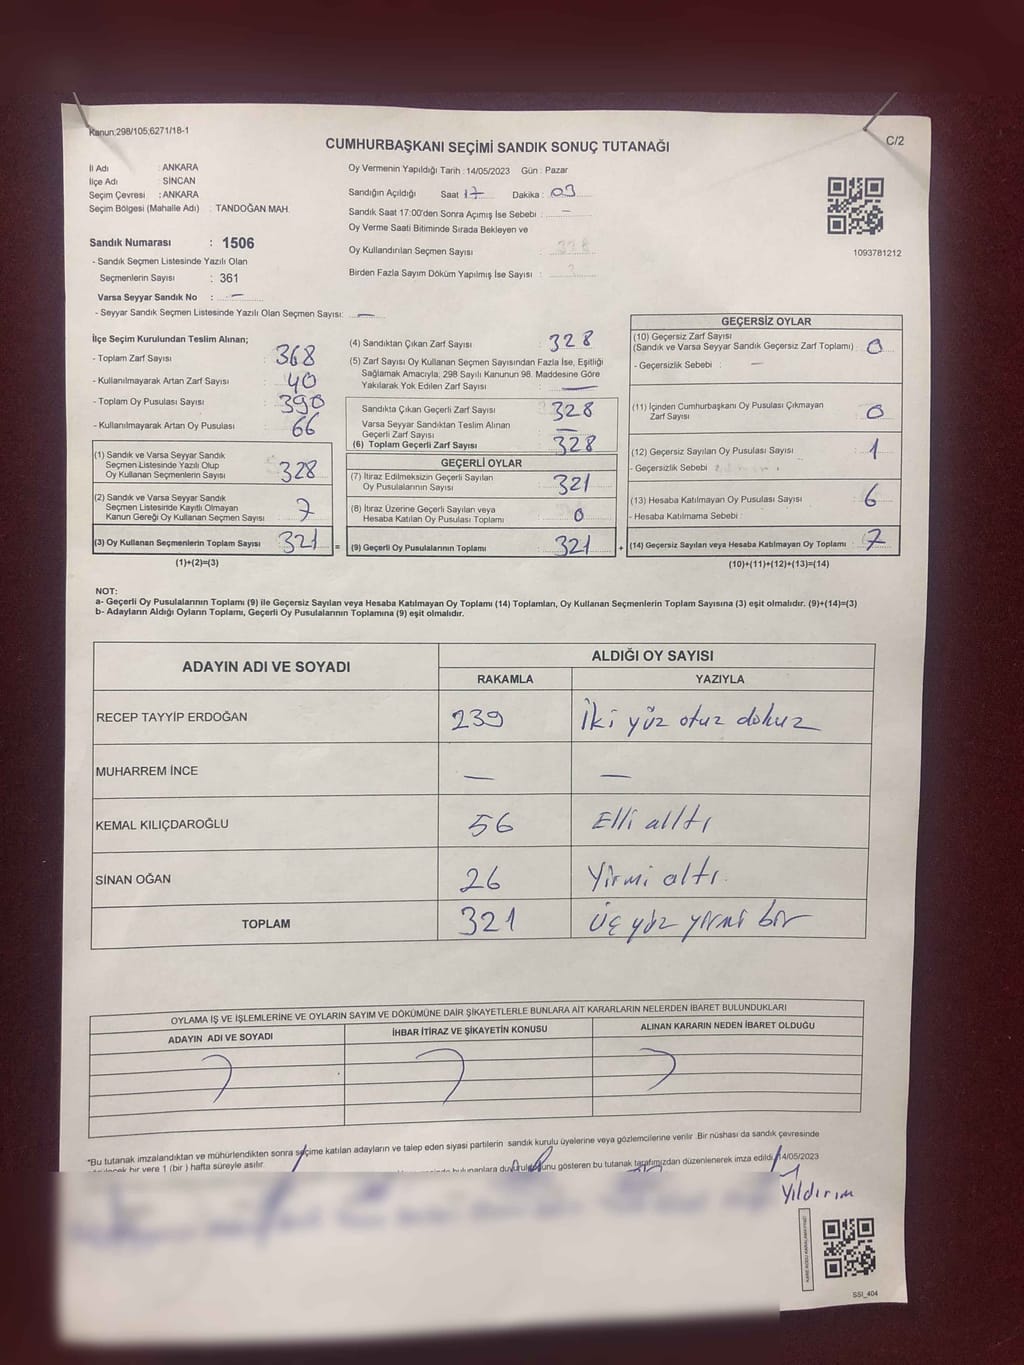 Kanun;298/105;6271/18-1
C/2
CUMHURBAŞKANI SEÇİMİ SANDIK SONUÇ TUTANAĞI
İl Adı : ANKARA
İlçe Adı : SİNCAN
Seçim Çevresi : ANKARA
Seçim Bölgesi (Mahalle Adı) : TANDOĞAN MAH.
Sandık Numarası : 1506
- Sandık Seçmen Listesinde Yazılı Olan
Seçmenlerin Sayısı : 361
Varsa Seyyar Sandık No : —
- Seyyar Sandık Seçmen Listesinde Yazılı Olan Seçmen Sayısı: —
Oy Vermenin Yapıldığı Tarih : 14/05/2023 Gün : Pazar
Sandığın Açıldığı Saat 17 Dakika : 09
Sandık Saat 17:00'den Sonra Açımış İse Sebebi : —
Oy Verme Saati Bitiminde Sırada Bekleyen ve
Oy Kullandırılan Seçmen Sayısı :
Birden Fazla Sayım Döküm Yapılmış İse Sayısı :
1093781212
İlçe Seçim Kurulundan Teslim Alınan;
- Toplam Zarf Sayısı : 368
- Kullanılmayarak Artan Zarf Sayısı : 40
- Toplam Oy Pusulası Sayısı : 390
- Kullanılmayarak Artan Oy Pusulası : 66
(1) Sandık ve Varsa Seyyar Sandık
Seçmen Listesinde Yazılı Olup
Oy Kullanan Seçmenlerin Sayısı : 328
(2) Sandık ve Varsa Seyyar Sandık
Seçmen Listesinde Kayıtlı Olmayan
Kanun Gereği Oy Kullanan Seçmen Sayısı : 7
(3) Oy Kullanan Seçmenlerin Toplam Sayısı : 321 =
(1)+(2)=(3)
(4) Sandıktan Çıkan Zarf Sayısı : 328
(5) Zarf Sayısı Oy Kullanan Seçmen Sayısından Fazla İse, Eşitliği
Sağlamak Amacıyla; 298 Sayılı Kanunun 98. Maddesine Göre
Yakılarak Yok Edilen Zarf Sayısı : —
Sandıkta Çıkan Geçerli Zarf Sayısı : 328
Varsa Seyyar Sandıktan Teslim Alınan
Geçerli Zarf Sayısı : —
(6) Toplam Geçerli Zarf Sayısı : 328
GEÇERLİ OYLAR
(7) İtiraz Edilmeksizin Geçerli Sayılan
Oy Pusulalarının Sayısı : 321
(8) İtiraz Üzerine Geçerli Sayılan veya
Hesaba Katılan Oy Pusulası Toplamı : 0
(9) Geçerli Oy Pusulalarının Toplamı : 321 +
GEÇERSİZ OYLAR
(10) Geçersiz Zarf Sayısı
(Sandık ve Varsa Seyyar Sandık Geçersiz Zarf Toplamı) : 0
- Geçersizlik Sebebi : —
(11) İçinden Cumhurbaşkanı Oy Pusulası Çıkmayan
Zarf Sayısı : 0
(12) Geçersiz Sayılan Oy Pusulası Sayısı : 1
- Geçersizlik Sebebi
(13) Hesaba Katılmayan Oy Pusulası Sayısı : 6
- Hesaba Katılmama Sebebi :
(14) Geçersiz Sayılan veya Hesaba Katılmayan Oy Toplamı : 7
(10)+(11)+(12)+(13)=(14)
NOT:
a- Geçerli Oy Pusulalarının Toplamı (9) ile Geçersiz Sayılan veya Hesaba Katılmayan Oy Toplamı (14) Toplamları, Oy Kullanan Seçmenlerin Toplam Sayısına (3) eşit olmalıdır. (9)+(14)=(3)
b- Adayların Aldığı Oyların Toplamı, Geçerli Oy Pusulalarının Toplamına (9) eşit olmalıdır.
ADAYIN ADI VE SOYADI
ALDIĞI OY SAYISI
RAKAMLA YAZIYLA
RECEP TAYYİP ERDOĞAN 239 İki yüz otuz dokuz
MUHARREM İNCE — —
KEMAL KILIÇDAROĞLU 56 Elli alltı
SİNAN OĞAN 26 Yirmi altı
TOPLAM 321 Üç yüz yirmi bir
OYLAMA İŞ VE İŞLEMLERİNE VE OYLARIN SAYIM VE DÖKÜMÜNE DAİR ŞİKAYETLERLE BUNLARA AİT KARARLARIN NELERDEN İBARET BULUNDUKLARI
ADAYIN ADI VE SOYADI İHBAR İTİRAZ VE ŞİKAYETİN KONUSU ALINAN KARARIN NEDEN İBARET OLDUĞU
*Bu tutanak imzalandıktan ve mühürlendikten sonra seçime katılan adayların ve talep eden siyasi partilerin sandık kurulu üyelerine veya gözlemcilerine verilir. Bir nüshası da sandık çevresinde
bir yere 1 (bir) hafta süreyle asılır.
bulunanlara duyurulduğunu gösteren bu tutanak tarafımızdan düzenlenerek imza edildi. 14/05/2023
Yıldırım
SSI_404